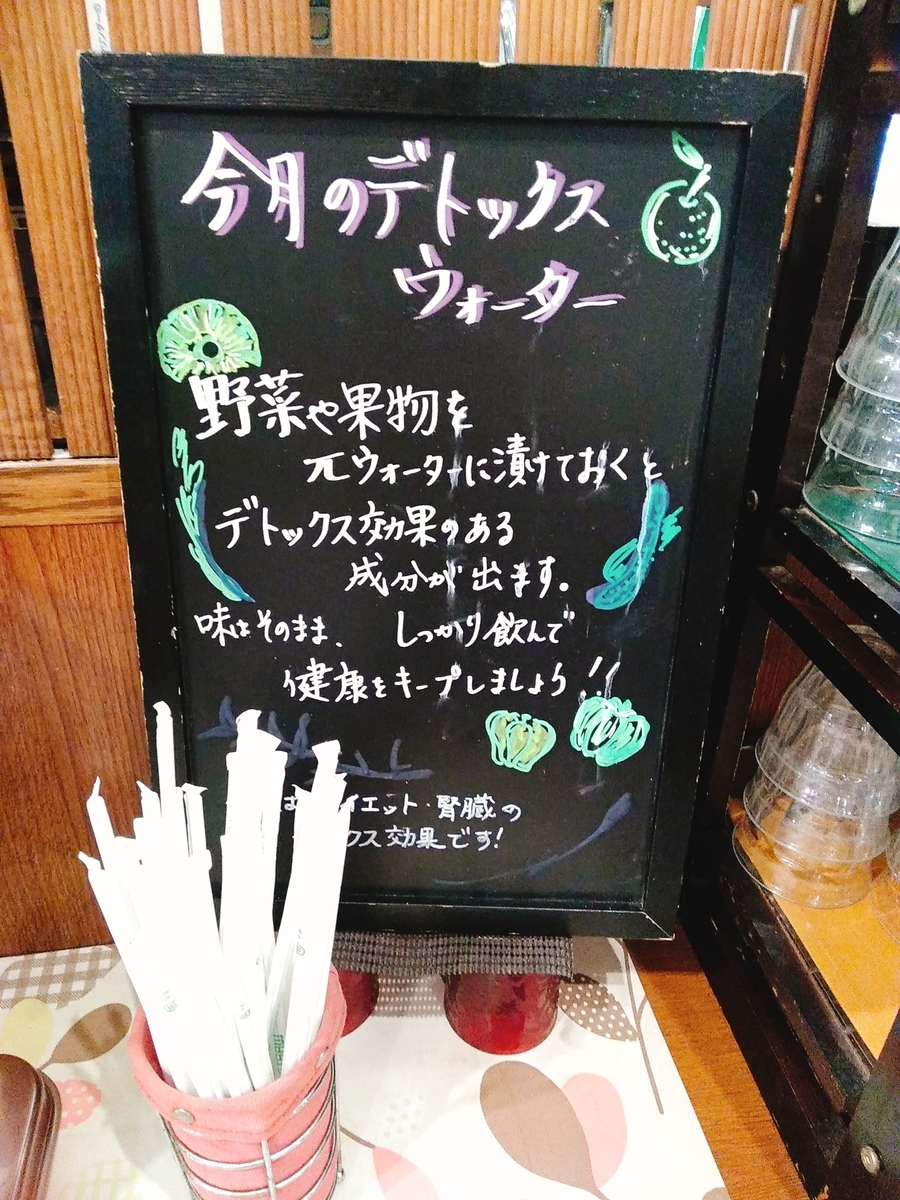 今月のデトックス
ウォーター
野菜や果物を
元ウォーターに漬けておくと
デトックス効果のある
成分が出ます。
味はそのまま、しっかり飲んで
健康をキープしましょう!!
は イエット・腎臓の
クス効果です!